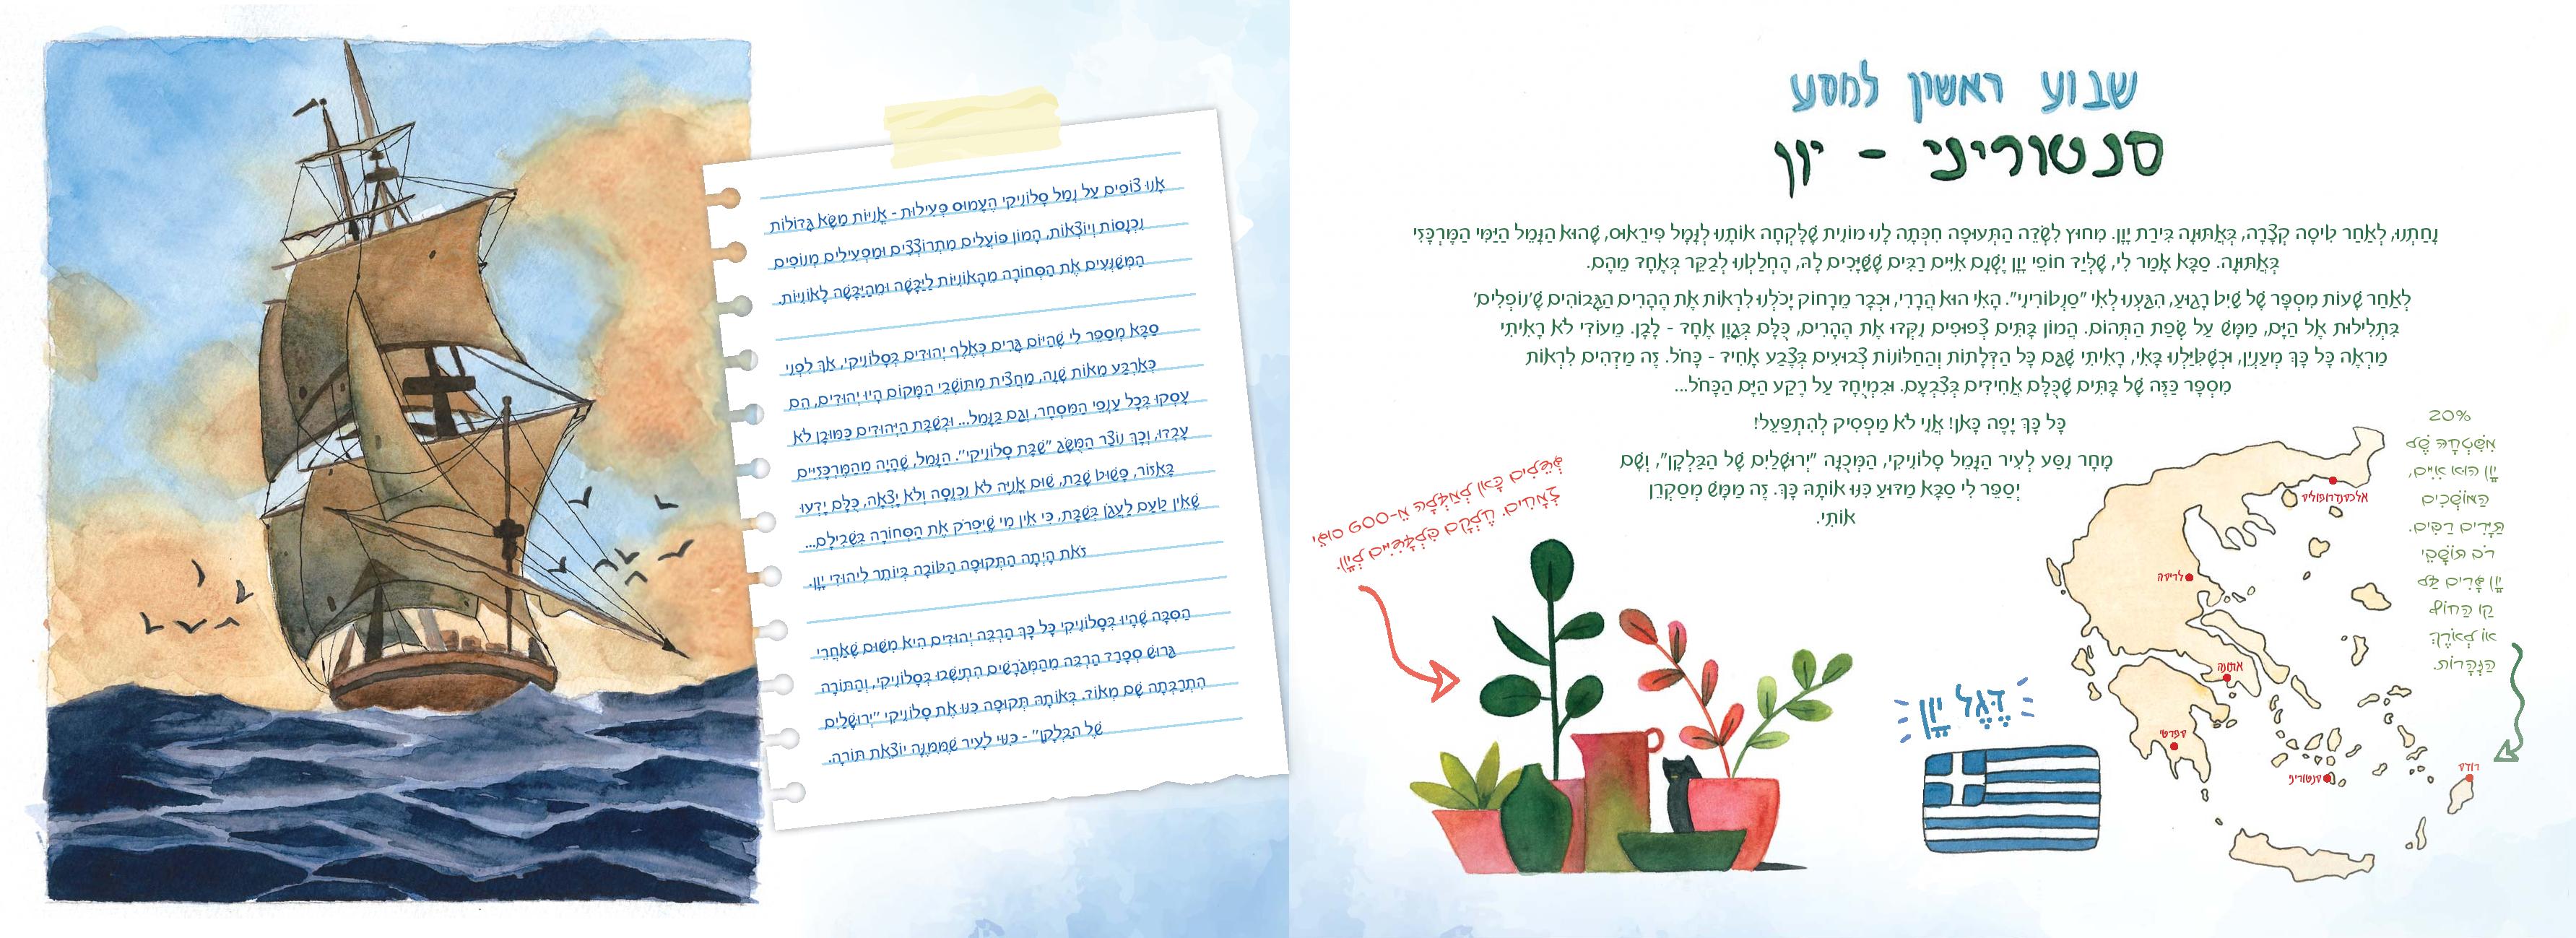 שבוע ראשון למסע
סנטוריני - יוון
נָחַתְנוּ, לְאַחַר טִיסָה קְצָרָה, בְּאָתוּנָה בִּירַת יָוָן. מִחוּץ לִשְׂדֵה הַתְּעוּפָה חִכְּתָה לָנוּ מוֹנִית שֶׁלָּקְחָה אוֹתָנוּ לְנָמָל פִּירֵאוּס, שֶׁהוּא הַנָּמָל הַיַּמִּי הַמֶּרְכָּזִי
בְּאָתוּנָה. סַבָּא אָמַר לִי, שֶׁלְּיַד חוֹפֵי יָוָן יֶשְׁנָם אִיִּים רַבִּים שֶׁשַּׁיָּכִים לָהּ, הֶחְלַטְנוּ לְבַקֵּר בְּאֶחָד מֵהֶם.
לְאַחַר שָׁעוֹת מִסְפָּר שֶׁל שַׁיִט רָגוּעַ, הִגַּעְנוּ לָאִי "סַנְטוֹרִינִי". הָאִי הוּא הֲרָרִי, וּכְבָר מֵרָחוֹק יָכֹלְנוּ לִרְאוֹת אֶת הֶהָרִים הַגְּבוֹהִים שֶׁ'נּוֹפְלִים'
בִּתְלִילוּת אֶל הַיָּם, מַמָּשׁ עַל שְׂפַת הַתְּהוֹם. הֲמוֹן בָּתִּים צְפוּפִים נִקְּדוּ אֶת הֶהָרִים, כֻּלָּם בְּגָוֶן אֶחָד - לָבָן. מֵעוֹדִי לֹא רָאִיתִי
מַרְאֶה כָּל כָּךְ מְעַנְיֵן, וּכְשֶׁטִּיַּלְנוּ בָּאִי, רָאִיתִי שֶׁגַּם כָּל הַדְּלָתוֹת וְהַחַלּוֹנוֹת צְבוּעִים בְּצֶבַע אָחִיד - כָּחֹל. זֶה מַדְהִים לִרְאוֹת
מִסְפָּר כָּזֶה שֶׁל בָּתִּים שֶׁכֻּלָּם אֲחִידִים בְּצִבְעָם. וּבִמְיֻחָד עַל רֶקַע הַיָּם הַכָּחֹל...
כָּל כָּךְ יָפֶה כָּאן! אֲנִי לֹא מַפְסִיק לְהִתְפַּעֵל!
מָחָר נִסַּע לְעִיר הַנָּמֵל סָלוֹנִיקִי, הַמְּכֻנָּה "יְרוּשָׁלַיִם שֶׁל הַבַּלְקָן", וְשָׁם
יְסַפֵּר לִי סַבָּא מַדּוּעַ כִּנּוּ אוֹתָהּ כָּךְ. זֶה מַמָּשׁ מְסַקְרֵן
אוֹתִי.
20%
מִשִּׁטְחָהּ שֶׁל
יָוָן הוּא אִיִּים,
הַמּוֹשְׁכִים
תַּיָּרִים רַבִּים.
רֹב תּוֹשָׁבֵי
יָוָן גָּרִים עַל
קַו הַחוֹף
אוֹ לְאֹרֶךְ
הַנְּהָרוֹת.
אלכסנדרופוליס
לריסה
אתונה
ספרטי
סנטוריני
רודוס
דֶּגֶל יָוָן
אָנוּ צוֹפִים עַל נְמַל סָלוֹנִיקִי הֶעָמוּס פְּעִילוּת - אֳנִיּוֹת מַשָּׂא גְּדוֹלוֹת
נִכְנָסוֹת וְיוֹצְאוֹת, הֲמוֹן פּוֹעֲלִים מִתְרוֹצְצִים וּמַפְעִילִים מְנוֹפִים
הַמְּשַׁנְּעִים אֶת הַסְּחוֹרָה מֵהָאֳנִיּוֹת לַיַּבָּשָׁה וּמֵהַיַּבָּשָׁה לָאֳנִיּוֹת.
סַבָּא מְסַפֵּר לִי שֶׁהַיּוֹם גָּרִים כְּאֶלֶף יְהוּדִים בְּסָלוֹנִיקִי, אַךְ לִפְנֵי
כְּאַרְבַּע מֵאוֹת שָׁנָה, מַחֲצִית מִתּוֹשָׁבֵי הַמָּקוֹם הָיוּ יְהוּדִים, הֵם
עָסְקוּ בְּכָל עַנְפֵי הַמִּסְחָר, וְגַם בַּנָּמָל... וּבְשַׁבָּת הַיְּהוּדִים כַּמּוּבָן לֹא
עָבְדוּ, וְכָךְ נוֹצַר הַמֻּשָּׂג "שַׁבָּת סָלוֹנִיקִי". הַנָּמָל, שֶׁהָיָה מֵהַמֶּרְכָּזִיִּים
בָּאֵזוֹר, פָּשׁוּט שָׁבַת, שׁוּם אֳנִיָּה לֹא נִכְנְסָה וְלֹא יָצְאָה, כֻּלָּם יָדְעוּ
שֶׁאֵין טַעַם לַעֲגֹן בְּשַׁבָּת, כִּי אֵין מִי שֶׁיִּפְרֹק אֶת הַסְּחוֹרָה בִּשְׁבִילָם...
זֹאת הָיְתָה הַתְּקוּפָה הַטּוֹבָה בְּיוֹתֵר לִיהוּדֵי יָוָן.
הַסִּבָּה שֶׁהָיוּ בְּסָלוֹנִיקִי כָּל כָּךְ הַרְבֵּה יְהוּדִים הִיא מִשּׁוּם שֶׁאַחֲרֵי
גֵּרוּשׁ סְפָרַד הַרְבֵּה מֵהַמְּגֹרָשִׁים הִתְיַשְּׁבוּ בְּסָלוֹנִיקִי, וְהַתּוֹרָה
הִתְרַבְּתָה שָׁם מְאוֹד. בְּאוֹתָהּ תְּקוּפָה כִּנּוּ אֶת סָלוֹנִיקִי "יְרוּשָׁלַיִם
שֶׁל הַבַּלְקָן" - כִּנּוּי לָעִיר שֶׁמִּמֶּנָּה יוֹצֵאת תּוֹרָה.